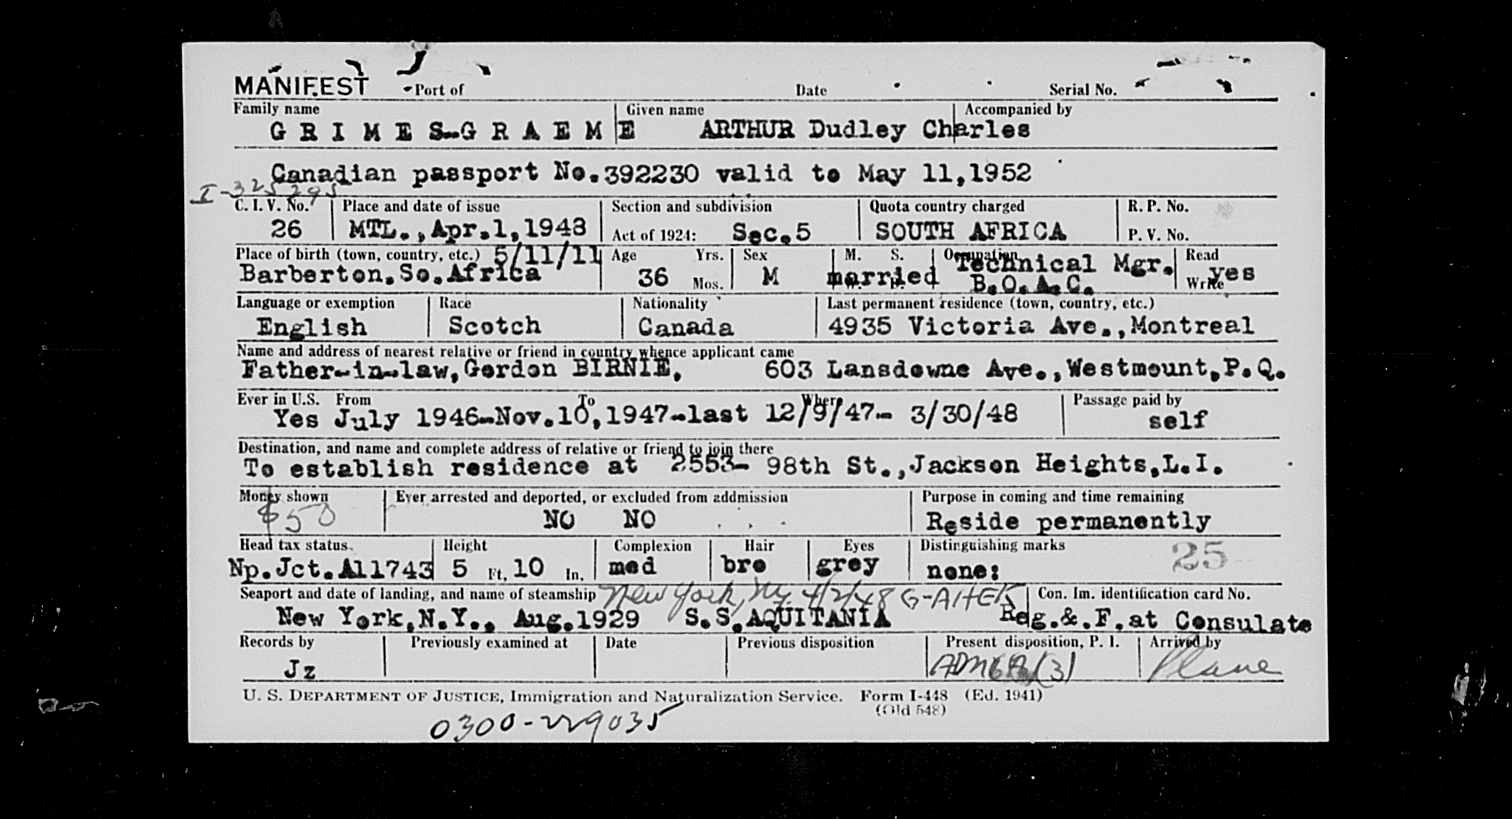 MANIFEST Port of Date Serial No.
Family name Given name Accompanied by
G R I M E S-G R A E M E ARTHUR Dudley Charles
Canadian passport No.392230 valid to May 11,1952
I-325295
C. I. V. No. Place and date of issue Section and subdivision Quota country charged R. P. No.
26 MTL.,Apr.1,1948 Act of 1924: Sec.5 SOUTH AFRICA P. V. No.
Place of birth (town, country, etc.) 5/11/11 Age Yrs. Sex M. S. Occupation Read
Barberton.So.Africa 36 Mos. M married Technical Mgr. B.O.A.C. Write yes
Language or exemption Race Nationality Last permanent residence (town, country, etc.)
English Scotch Canada 4935 Victoria Ave.,Montreal
Name and address of nearest relative or friend in country whence applicant came
Father-in-law,Gordon BIRNIE, 603 Lansdowne Ave.,Westmount,P.Q.
Ever in U.S. From To Where Passage paid by
Yes July 1946-Nov.10,1947-last 12/9/47- 3/30/48 self
Destination, and name and complete address of relative or friend to join there
To establish residence at 2553- 98th St.,Jackson Heights,L.I.
Money shown Ever arrested and deported, or excluded from addmission Purpose in coming and time remaining
$50 NO NO Reside permanently
Head tax status. Height Complexion Hair Eyes Distinguishing marks 25
Np.Jct.A11743 5 Ft. 10 In. med bro grey none:
Seaport and date of landing, and name of steamship New York, Ny 4/2/48 G-AHEK Con. Im. identification card No.
New York,N.Y., Aug.1929 S.S.AQUITANIA Reg.&.F.at Consulate
Records by Previously examined at Date Previous disposition Present disposition, P. I. Arrived by
Jz (3) Plane
U. S. DEPARTMENT OF JUSTICE, Immigration and Naturalization Service. Form I-448 (Ed. 1941)
(Old 548)
0300-229035